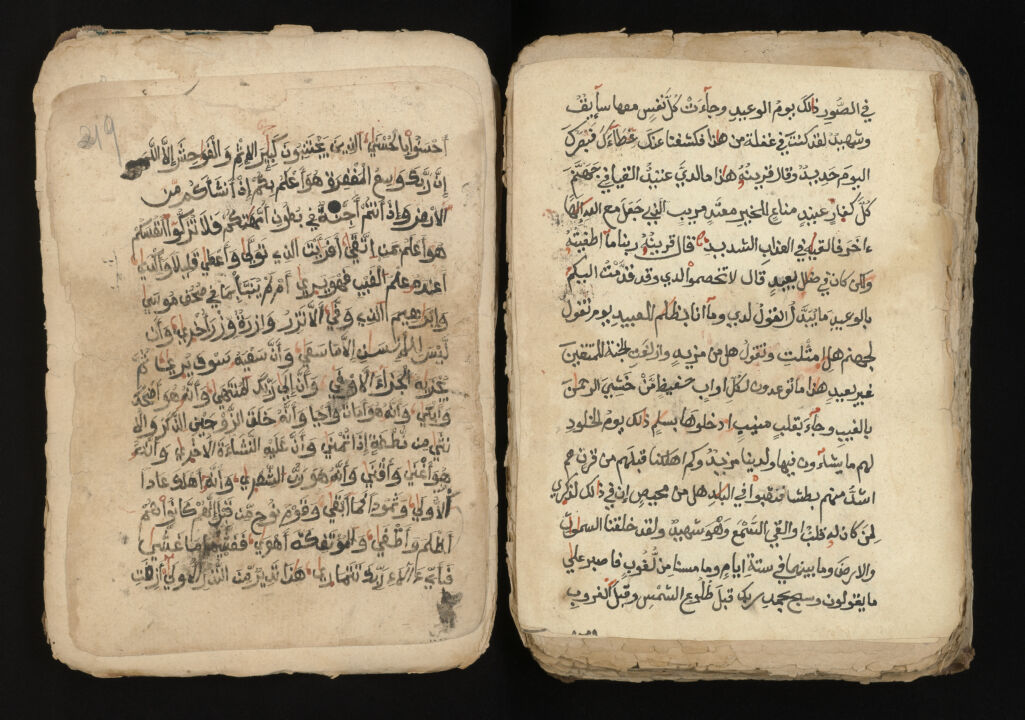 في الصور ذالك يوم الوعيد وجآءت كل نفس معها سآيق
وشهيد لقد كنت في غفلة من هذا فكشفنا عنك غطآءك فبصرك
اليوم حديد وقال قرينه هذا ما لدي عتيد القيا في جهنم
كل كفار عنيد مناع للخير معتد مريب الذي جعل مع الله الها
ءاخر فالقياه في العذاب الشديد قال قرينه ربنا ما اطغيته
ولكن كان في ضلل بعيد قال لا تختصموا لدي وقد قدمت اليكم
بالوعيد ما يبدل القول لدي وما انا بظلم للعبيد يوم نقول
لجهنم هل امتلت وتقول هل من مزيد وازلفت الجنة للمتقين
غير بعيد هذا ما توعدون لكل اواب حفيظ من خشي الرحمن
بالغيب وجآء بقلب منيب ادخلوها بسلم ذلك يوم الخلود
لهم ما يشآءون فيها ولدينا مزيد وكم اهلكنا قبلهم من قرن هم
اشد منهم بطشا فنقبوا في البلد هل من محيص ان في ذلك لذكري
لمن كان له قلب او القي السمع وهو شهيد ولقد خلقنا السموت
والارض وما بينهما في ستة ايام وما مسنا من لغوب فاصبر علي
ما يقولون وسبح بحمد ربك قبل طلوع الشمس وقبل الغروب
219
احسنوا بالحسني الذين يجتنبون كبير الاثم والفوحش الا اللمم
ان ربك وسع المغفرة هو اعلم بكم اذ انشاكم من
الارض واذ انتم اجنة في بطون امهتكم فلا تزكوا انفسكم
هو اعلم من اتقي افريت الذي تولي واعطي قليلا واكدي
اعنده علم الغيب فهو يري ام لم ينبا بما في صحف موسي
وابرهيم الذي وفي الا تزر وازرة وزر اخري وان
ليس للانسن الا ما سعي وان سعيه سوف يري ثم
يجزيه الجزآء الاوفي وان الي ربك المنتهي وانه هو اضحك
وابكي وانه هو امات واحيا وانه خلق الزوجين الذكر والا
نثي من نطفة اذا تمني وان عليه النشاءة الاخري وانه
هو اغني واقني وانه هو رب الشعري وانه اهلك عادا
الاولي وثمودا فما ابقي وقوم نوح من قبل انهم كانوا هم
اظلم واطغي والمؤتفكة اهوي فغشيها ما غشي
فباي ءالآء ربك تتماري هذا نذير من النذر الاولي ازفت